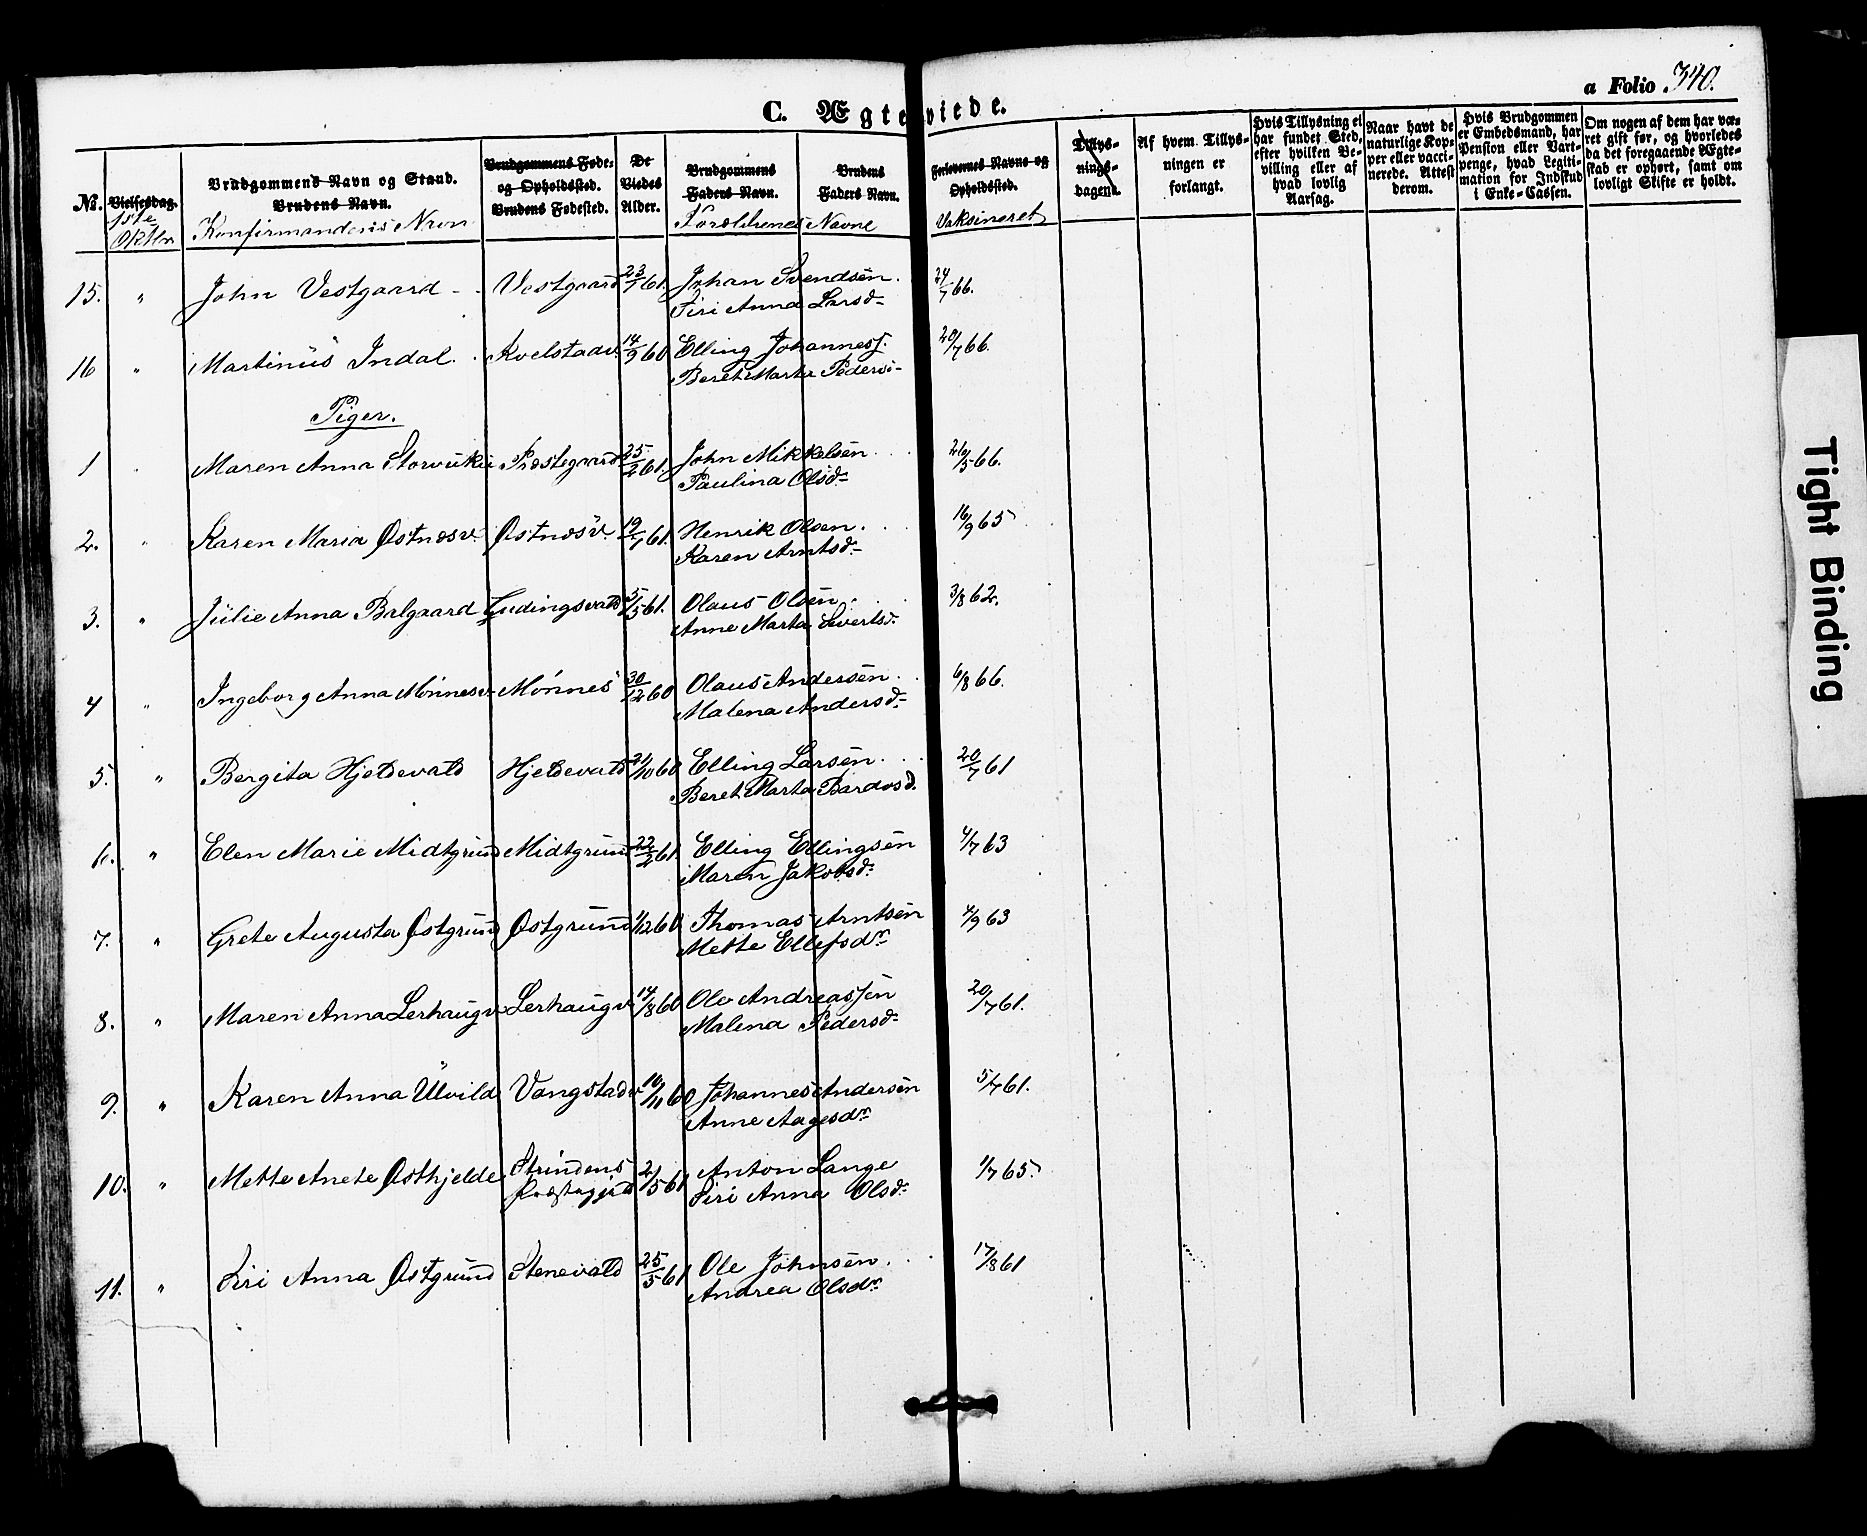 a Folio 340.
C. Ægteviede.
No. Vielsesdag. Brudgommens Navn og Stand. Brudens Navn. Brudgommens Føde- og Opholdssted. Brudens Fødested. De Viedes Alder. Brudgommens Faders Navn. Brudens Faders Navn. Forlovernes Navne og Opholdssted. Tillys-nings-dagene. Af hvem Tillys-ningen er forlangt. Hvis Tillysning ei har fundet Sted, efter hvilken Be-villing eller af hvad lovlig Aarsag. Naar havt de naturlige Kop-per eller vacci-nerede. Attest derom. Hvis Brudgommen er Embedsmand, har Pension eller Vart-penge, hvad Legiti-mation for Indskud i Enke-Cassen. Om nogen af dem har væ-ret gift før, og hvorledes da det foregaaende Ægte-skab er ophørt, samt om lovligt Skifte er holdt.
1ste Oktbr Konfirmandens Navn Forældrenes Navne Vaksineret
15. " John Vestgaard - Vestgaard 23/7 61. Johan Svendsen. 24/7 66.
Siri Anna Larsd-
16 " Martinus Indal. Kvelstadv. 14/9 60 Elling Johanness. 20/7 66.
Beret Marta Peders-
Piger.
1 Maren Anna Storvukv Præstegaard 25/2 61. John Mikkelsen 26/5 66.
Paulina Olsd-
2. " Karen Maria Østnesv. Østnesv. 19/1 61. Henrik Olsen. 16/9 65
Karen Arntsd.-
3. " Julie Anna Balgaard Gudingsvald 5/5 61. Olaus Olsen. 3/8 62.
Anne Marta Sivertsd-
4 " Ingeborg Anna Mønnesv Mønnes 30/12 60 Olaus Andersen. 6/8 66.
Malena Andersd-
5. " Bergita Hjeldevald Hjeldevald 21/10 60 Elling Larsen. 20/7 61
Beret Marta Bardosd.
6. " Elen Marie Midtgrund Midtgrund 22/2 61. Elling Ellingsen 4/7 63
Maren Jakobsd-
7. " Grete Augusta Østgrund Østgrund 1/12 60 Thomas Arntsen 4/9 63
Mette Ellefsdr
8. " Maren Anna Lerhaugv Lerhaugv 14/8 60 Ole Andreassen 20/7 61.
Malena Pedersd-
9. " Karen Anna Ulvild Vangstadv 10/11 60 Johannes Andersen 5/7 61.
Anne Aagesdr
10. " Mette Anete Østhjelde Strindens Præstegjeld 2/5 61 Anton Lange 1/7 65.
Siri Anna Olsd-
11. " Siri Anna Østgrund Stenevald 25/5 61 Ole Johnsen. 17/8 61
Andrea Olsdr
Tight Binding